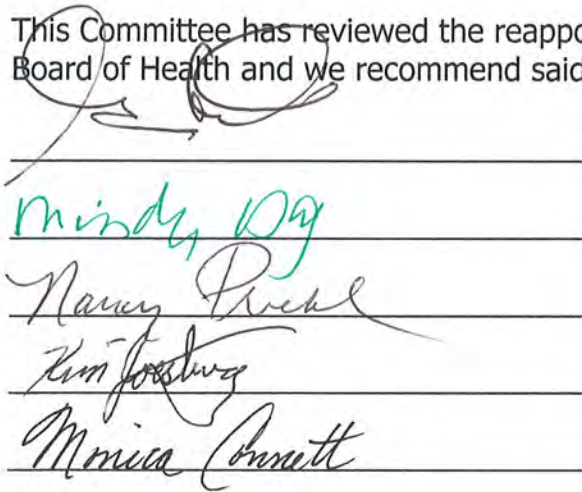 This Committee has reviewed the reappo
Board of Health and we recommend said
Mindy
Nancy
Kim
Monica Connett